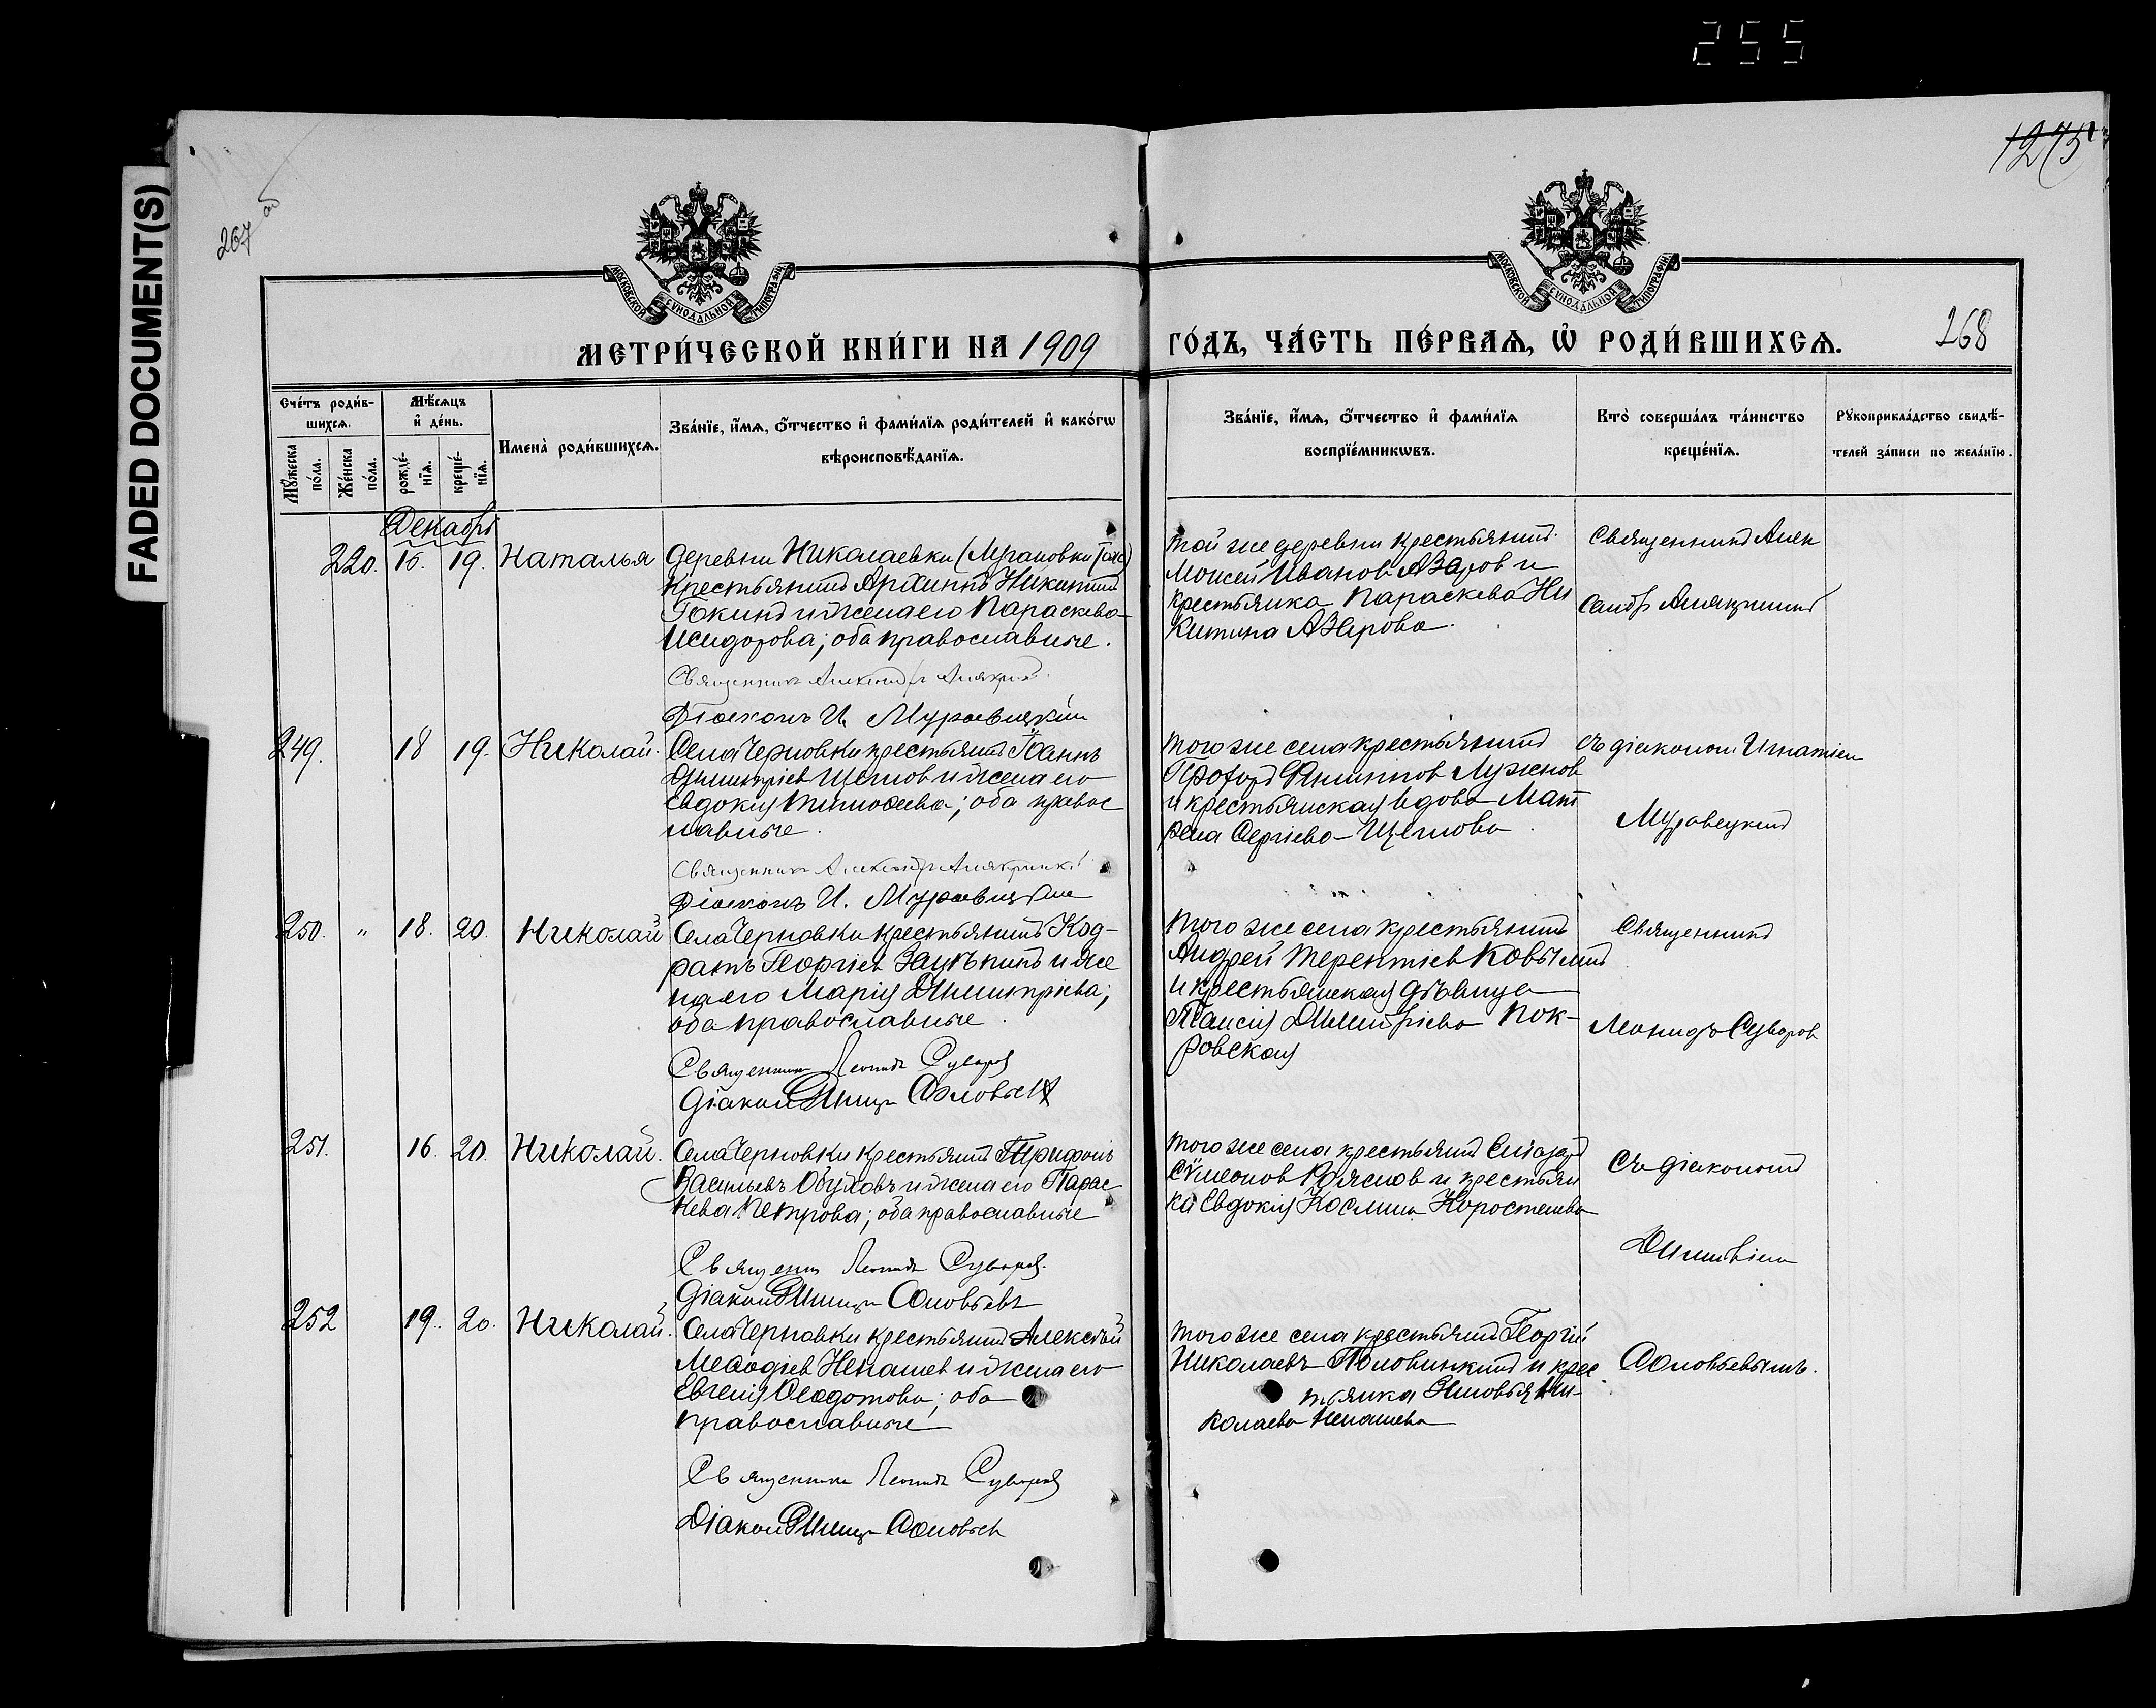 255
FADED DOCUMENT(S)
1275
267 об
МОСКОВСКОЙ СѴНОДАЛЬНОЙ ТИПОГРАФІИ
МОСКОВСКОЙ СѴНОДАЛЬНОЙ ТИПОГРАФІИ
МЕТРИ́ЧЕСКОЙ КНИ́ГИ НА 1909 ГО́ДЪ, ЧА́СТЬ ПЕ́РВАѦ, Ѡ҆ РОДИ́ВШИХСѦ.
268
Сче́тъ роди́в-
шихсѧ.
Мѣ́сѧцъ
и҆ де́нь.
Мꙋ́жеска по́ла.
Же́нска по́ла.
рожде́-
нїѧ.
креще́-
нїѧ.
Имена̀ роди́вшихсѧ.
Зва́нїе, и҆́мѧ, ѻ҆́тчество и҆ фами́лїѧ роди́телей и҆ како́гѡ
вѣроисповѣ́данїѧ.
Зва́нїе, и҆́мѧ, ѻ҆́тчество и҆ фами́лїѧ
воспрїе́мникѡвъ.
Кто̀ соверша́лъ та́инство
креще́нїѧ.
Рꙋкоприкла́дство свидѣ́-
телей за́писи по жела́нїю.
Декабрь
220. 15. 19. Наталья
Деревни Николаевки
крестьянинъ Архиппъ Никитинъ
Гокинъ и жена его Параскева
Исидорова; оба православные.
Священникъ Александръ
Діаконъ И. Муравецкій
Той же деревни крестьянинъ
Моисей Иванов Азаров и
крестьянка Параскева Ни
китина Азарова.
Священникъ Алек
сандръ Алякринскій
249. 18 19. Николай.
Села Черновки крестьянинъ Іоаннъ
Димитріев Щеглов и жена его
Евдокія Тимоѳеева; оба правос
лавные.
Священникъ Александръ Алякринскій
Діаконъ И. Муравецкій
Того же села крестьянинъ
Филиппов Лужнов
и крестьянская вдова Мат
рена Сергіева Щеглова.
съ діакономъ Игнатіем
Муравецкимъ
250. " 18. 20. Николай
Села Черновки крестьянинъ Код-
ратъ Георгіев и же
на его Марія Димитріева;
оба православные.
Священникъ Леонидъ Суворов
Діаконъ Димитр Соловьевъ
Того же села крестьянинъ
Андрей Терентіев Ковылинъ
и крестьянская дѣвица
Таисія Димитріева Пок-
ровская
Священникъ
Леонидъ Суворов
251. 16. 20. Николай.
Села Черновки крестьянинъ Трифонъ
Васильевъ Обуховъ и жена его Парас
кева Петрова; оба православные
Священникъ Леонидъ Суворов.
Діаконъ Димитр Соловьевъ
Того же села крестьянинъ
Сѵмеонов и крестьян
ка Евдокія Космина Коростелева
Съ діакономъ
Димитріем
252 19. 20. Николай.
Села Черновки крестьянинъ Алексѣй
Меѳодіев Ненашев и жена его
Евгенія Ѳеодотова; оба
православные
Священникъ Леонидъ Суворов
Діаконъ Димитр Соловьев
Того же села крестьянинъ Георгій
Николаевъ Половинкинъ и крес
тьянка Зиновья Ни-
колаева Ненашева
Соловьевымъ.